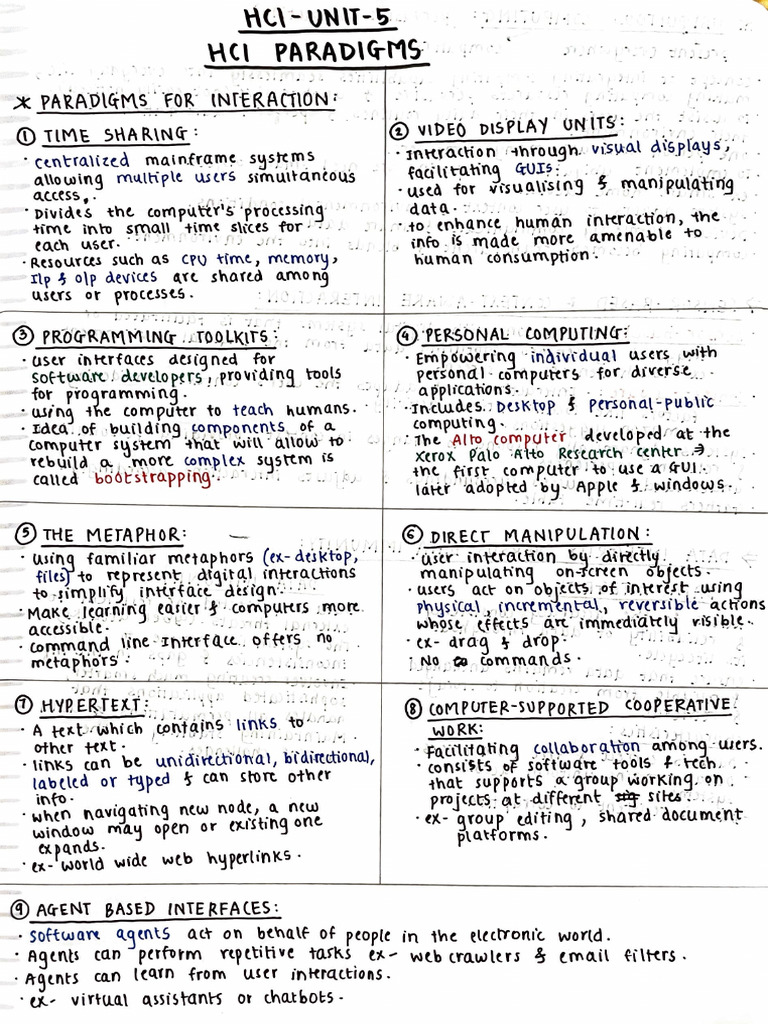 HCI-UNIT-5
HCI PARADIGMS
* PARADIGMS FOR INTERACTION:
① TIME SHARING:
· centralized mainframe systems
allowing multiple users simultaneous
access.
· Divides the computer's processing
time into small time slices for
each user.
· Resources such as CPU time, memory,
I/p & o/p devices are shared among
users or processes.
② VIDEO DISPLAY UNITS:
· Interaction through visual displays,
facilitating GUIs.
· used for visualising & manipulating
data.
· to enhance human interaction, the
info is made more amenable to
human consumption.
③ PROGRAMMING TOOLKITS:
· user interfaces designed for
software developers, providing tools
for programming.
· using the computer to teach humans.
· Idea of building components of a
computer system that will allow to
rebuild a more complex system is
called bootstrapping.
④ PERSONAL COMPUTING:
· Empowering individual users with
personal computers for diverse
applications.
· Includes Desktop & personal-public
computing.
· The Alto computer developed at the
Xerox Palo Alto Research center →
the first computer to use a GUI.
later adopted by Apple & windows.
⑤ THE METAPHOR:
· using familiar metaphors (ex- desktop,
files) to represent digital interactions
to simplify interface design.
· Make learning easier & computers more
accessible.
· command line Interface offers no
metaphors.
⑥ DIRECT MANIPULATION:
· user interaction by directly
manipulating on-screen objects.
· users act on objects of interest using
physical, incremental, reversible actions
whose effects are immediately visible.
· ex- drag & drop.
No commands.
⑦ HYPERTEXT:
· A text which contains links to
other text.
· links can be unidirectional, bidirectional,
labeled or typed & can store other
info.
· when navigating new node, a new
window may open or existing one
expands.
· ex- world wide web hyperlinks.
⑧ COMPUTER-SUPPORTED COOPERATIVE
WORK:
· Facilitating collaboration among users.
· consists of software tools & tech
that supports a group working on
projects at different sites.
· ex- group editing, shared document
platforms.
⑨ AGENT BASED INTERFACES:
· Software agents act on behalf of people in the electronic world.
· Agents can perform repetitive tasks ex- web crawlers & email filters.
· Agents can learn from user interactions.
· ex- virtual assistants or chatbots.